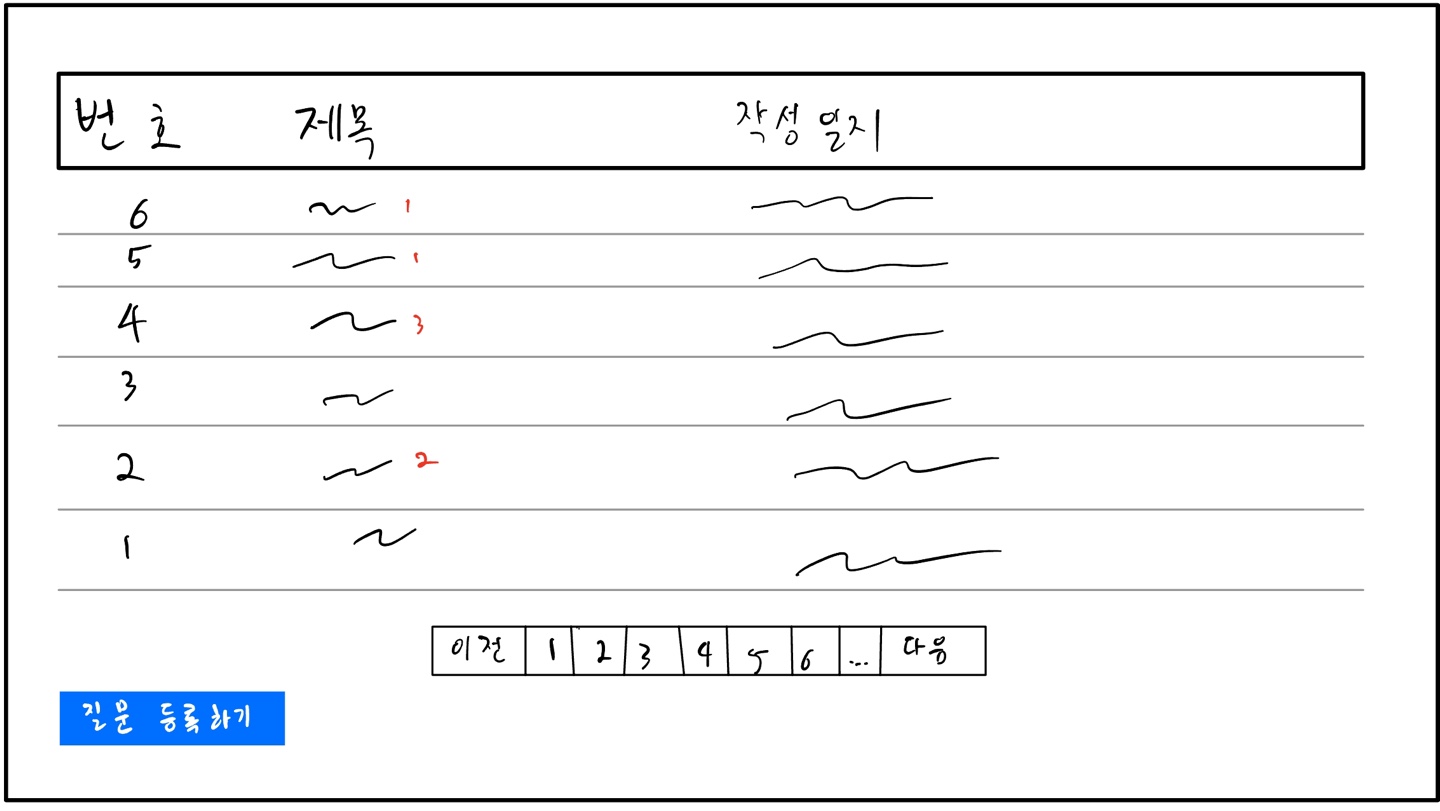 번호 제목 작성일지
6 1
5 1
4 3
3
2 2
1
이전 1 2 3 4 5 6 ... 다음
질문 등록하기